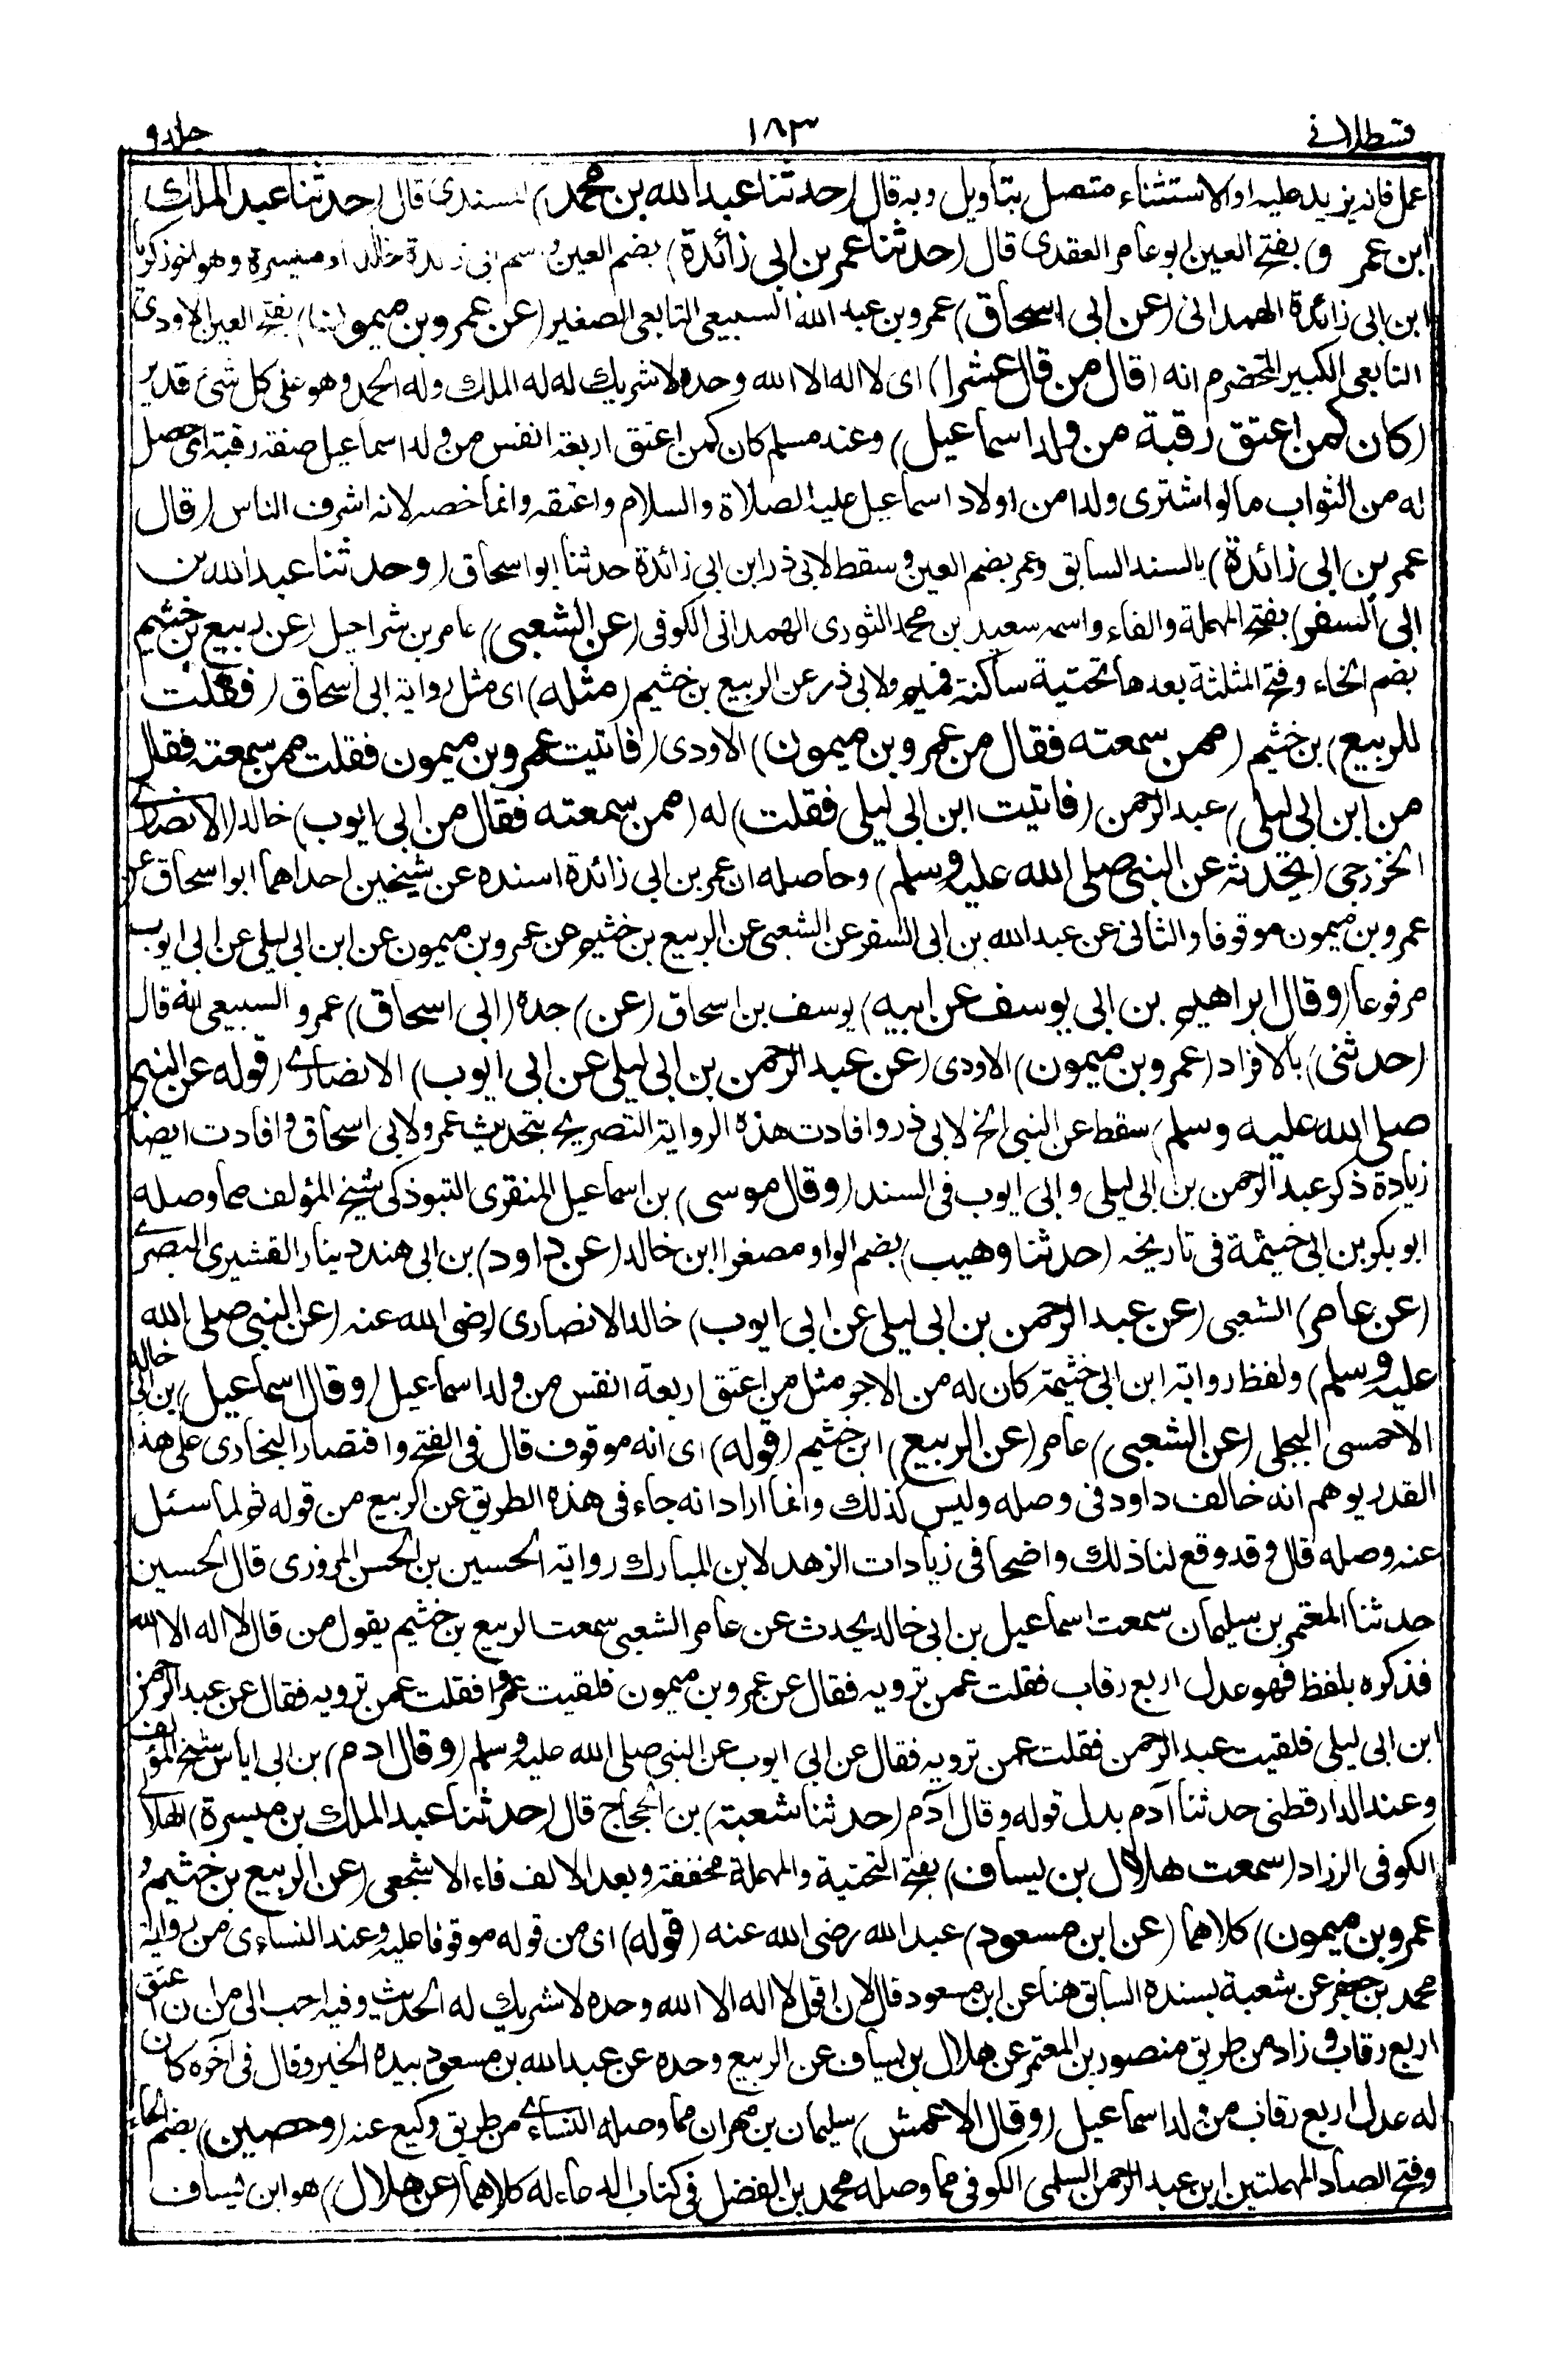 قسطلانی ١٨٣ جلد ٩
عمل فانه يزيد عليه او الاستثناء متصل بتاويل وبه قال (حدثنا عبد الله بن محمد) المسندى قال (حدثنا عبد الملك
ابن عمرو) بفتح العين ابو عامر العقدى قال (حدثنا عمر بن ابى زائدة) بضم العين واسم ابى زائدة خالد او ميسرة وهو اخو زكريا
ابن ابى زائدة الهمدانى (عن ابى اسحاق) عمرو بن عبد الله السبيعى التابعى الصغير (عن عمرو بن ميمون) بفتح العين الاودى
التابعى الكبير المخضرم انه (قال من قال عشرا) اى لا اله الا الله وحده لا شريك له له الملك وله الحمد وهو على كل شئ قدير
(كان كمن اعتق رقبة من ولد اسماعيل) وعند مسلم كان كمن اعتق اربعة انفس من ولد اسماعيل صفة رقبة اى حصل
له من الثواب ما لو اشترى ولدا من اولاد اسماعيل عليه الصلاة والسلام واعتقه وانما خصه لانه اشرف الناس (قال
عمر بن ابى زائدة) بالسند السابق وعمر بضم العين وسقط لابى ذر ابن ابى زائدة حدثنا ابو اسحاق (وحدثنا عبد الله بن
ابى السفر) بفتح المهملة والفاء واسمه سعيد بن محمد الثورى الهمدانى الكوفى (عن الشعبى) عامر بن شراحيل (عن ربيع بن خثيم
بضم الخاء وفتح المثلثة بعدها تحتية ساكنة فميم ولابى ذر عن الربيع بن خثيم (مثله) اى مثل رواية ابى اسحاق (فقلت
للربيع) بن خثيم (ممن سمعته فقال من عمرو بن ميمون) الاودى (فاتيت عمرو بن ميمون فقلت ممن سمعته فقال
من ابن ابى ليلى) عبد الرحمن (فاتيت ابن ابى ليلى فقلت) له (ممن سمعته فقال من ابى ايوب) خالد (الانصارى
الخزرجى (يحدثه عن النبى صلى الله عليه وسلم) وحاصله ان عمر بن ابى زائدة اسنده عن شيخين احداهما ابو اسحاق عن
عمرو بن ميمون موقوفا والثانى عن عبد الله بن ابى السفر عن الشعبى عن الربيع بن خثيم عن عمرو بن ميمون عن ابن ابى ليلى عن ابى ايوب
مرفوعا (وقال ابراهيم بن ابى يوسف عن ابيه) يوسف بن اسحاق (عن) جده (ابى اسحاق) عمرو السبيعى انه قال
(حدثنى) بالافراد (عمرو بن ميمون) الاودى (عن عبد الرحمن بن ابى ليلى عن ابى ايوب) الانصارى (قوله عن النبى
صلى الله عليه وسلم) سقط عن النبى الخ لابى ذر وافادت هذه الرواية التصريح بتحديث عمرو لابى اسحاق وافادت ايضا
زيادة ذكر عبد الرحمن بن ابى ليلى وابى ايوب فى السند (وقال موسى) بن اسماعيل المنقرى التبوذكى شيخ المؤلف مما وصله
ابو بكر بن ابى خيثمة فى تاريخه (حدثنا وهيب) بضم الواو مصغرا ابن خالد (عن داود) بن ابى هند دينار القشيرى البصرى
(عن عامر) الشعبى (عن عبد الرحمن بن ابى ليلى عن ابى ايوب) خالد الانصارى رضى الله عنه (عن النبى صلى الله
عليه وسلم) ولفظ رواية ابن ابى خثيمة كان له من الاجر مثل من اعتق اربعة انفس من ولد اسماعيل (وقال اسماعيل) بن ابى خالد
الاحمسى البجلى (عن الشعبى) عامر (عن الربيع) ابن خثيم (قوله) اى انه موقوف قال فى الفتح واقتصار البخارى على هذا
القدر يوهم انه خالف داود فى وصله وليس كذلك وانما اراد انه جاء فى هذه الطريق عن الربيع من قوله ثم لما سئل
عنه وصله قال وقد وقع لنا ذلك واضحا فى زيادات الزهد لابن المبارك رواية الحسين بن الحسن المروزى قال الحسين
حدثنا المعتمر بن سليمان سمعت اسماعيل بن ابى خالد يحدث عن عامر الشعبى سمعت الربيع بن خثيم يقول من قال لا اله الا الله
فذكره بلفظ فهو عدل اربع رقاب فقلت عمن ترويه فقال عن عمرو بن ميمون فلقيت عمرا فقلت عمن ترويه فقال عن عبد الرحمن
ابن ابى ليلى فلقيت عبد الرحمن فقلت عمن ترويه فقال عن ابى ايوب عن النبى صلى الله عليه وسلم (وقال ادم) بن ابى اياس شيخ المؤلف
وعند الدارقطنى حدثنا آدم بدل قوله وقال آدم (حدثنا شعبة) بن الحجاج قال (حدثنا عبد الملك بن ميسرة) الهلالى
الكوفى الزراد (سمعت هلال بن يساف) بفتح التحتية والمهملة مخففة وبعد الالف فاء الاشجعى (عن الربيع بن خثيم و
عمرو بن ميمون) كلاهما (عن ابن مسعود) عبد الله رضى الله عنه (قوله) اى من قوله موقوفا عليه وعند النساءى من رواية
محمد بن جعفر عن شعبة بسنده السابق هنا عن ابن مسعود قال لان اقول لا اله الا الله وحده لا شريك له الحديث وفيه احب الى من ان اعتق
اربع رقاب وزاد من طريق منصور بن المعتمر عن هلال بن يساف عن الربيع وحده عن عبد الله بن مسعود بيده الخير وقال فى آخره كان
له عدل اربع رقاب من ولد اسماعيل (وقال الاعمش) سليمان بن مهران مما وصله النساءى من طريق وكيع عنه (وحصين) بضم الحاء
وفتح الصاد المهملتين ابن عبد الرحمن السلمى الكوفى مما وصله محمد بن الفضل فى كتاب الدعاء له كلاهما (عن هلال) هو ابن يساف